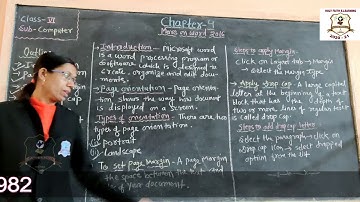 Class-VI
Sub-Computer
Chapter-4
More on Word 2016
DAILY FAITH & LEARNING
Outline
Introduction - Microsoft word
is a word processing program or
software which is designed to
create, organize and edit docu-
ments.
Page orientation - Page orienta-
tion shows the way how document
is displayed on a screen.
Types of orientation - There are two
types of page orientation.
(i) Portrait
(ii) Landscape
To set page Margin - A page Margin
is the space between the text and
of your document.
Steps to apply Margin
Click on Layout tab → Margin
→ Select the Margin Type.
Apply drop cap - A large capital
letter at the beginning of a text
block that has the depth of
two or more lines of regular text
is called drop cap.
Steps to add drop cap letter
Select the paragraph → click on
Drop cap option → select dropped
option from the list.
982